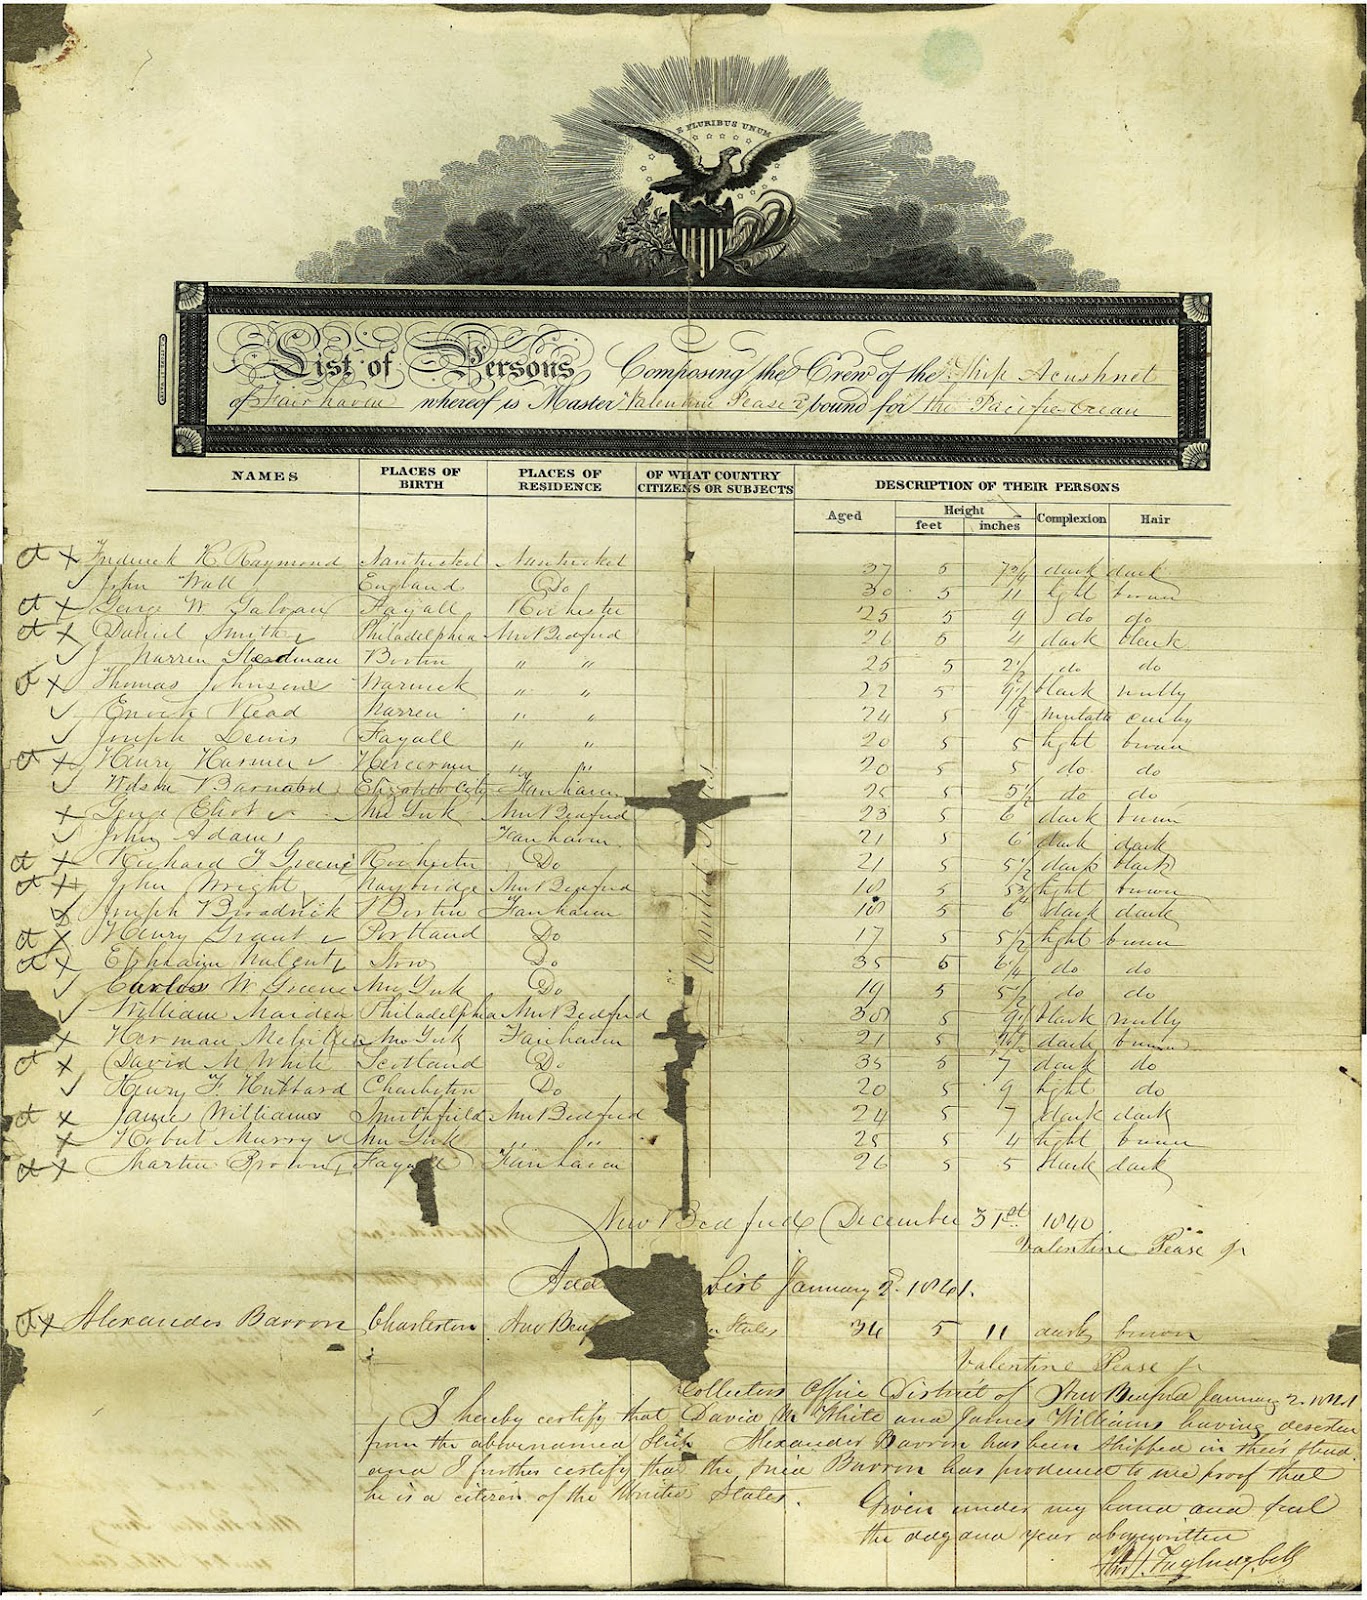 E PLURIBUS UNUM
List of Persons Composing the Crew of the Ship Acushnet
of Fairhaven whereof is Master Valentine Pease Jr bound for the Pacific Ocean
NAMES PLACES OF BIRTH PLACES OF RESIDENCE OF WHAT COUNTRY CITIZENS OR SUBJECTS DESCRIPTION OF THEIR PERSONS
Aged Height feet inches Complexion Hair
Frederick H. Raymond Nantucket Nantucket 27 5 dark dark
John Wall England Do 30 5 11 light brown
George W. Galvan Fayall Rochester 25 5 9 do do
Daniel Smith Philadelphia New Bedford 26 5 4 dark black
J Warren Steadman Boston " " 25 5 2½ do do
Thomas Johnson Warwick " " 22 5 9½ black woolly
Enoch Read Warren " " 24 5 9 mulatto curley
Joseph Lewis Fayall " " 20 5 5 light brown
Henry Harmer " " 20 5 5 do do
Wilson Barnard Elizabeth City Fairhaven 25 5 5½ do do
George Eliot New York New Bedford 23 5 6 dark brown
John Adams Fairhaven 21 5 6 dark dark
Richard F Greene Rochester Do 21 5 5½ dark black
John Wright New Bedford 18 5 5¾ light brown
Joseph Broadrick Boston Fairhaven 18 5 6 dark dark
Henry Grant Portland Do 17 5 5½ light brown
Ephraim Walcott Stow Do 35 5 6¼ do do
Carlos W Greene New York Do 19 5 5½ do do
William Maiden Philadelphia New Bedford 38 5 black woolly
Herman Melville New York Fairhaven 21 5 9½ dark brown
David M White Scotland Do 35 5 7 dark do
Henry F Hubbard Charleston Do 20 5 9 light do
James Williams Smithfield New Bedford 24 5 7 dark dark
Robert Murry New York " " 25 5 4 light brown
Martin Brown Fayall Fairhaven 26 5 5 dark dark
United States
New Bedford December 31st 1840
Valentine Pease Jr
Add List January 2. 1841.
Alexander Barron Charleston New Bedf States 34 5 11 dark brown
Valentine Pease Jr
Collectors Office District of New Bedford January 2. 1841
I hereby certify that David M White and James Williams having deserted
from the above named Ship Alexander Barron has been shipped in their stead
and I further certify that the said Barron has produced to me proof that
he is a citizen of the United States.
Given under my hand and seal
the day and year above written